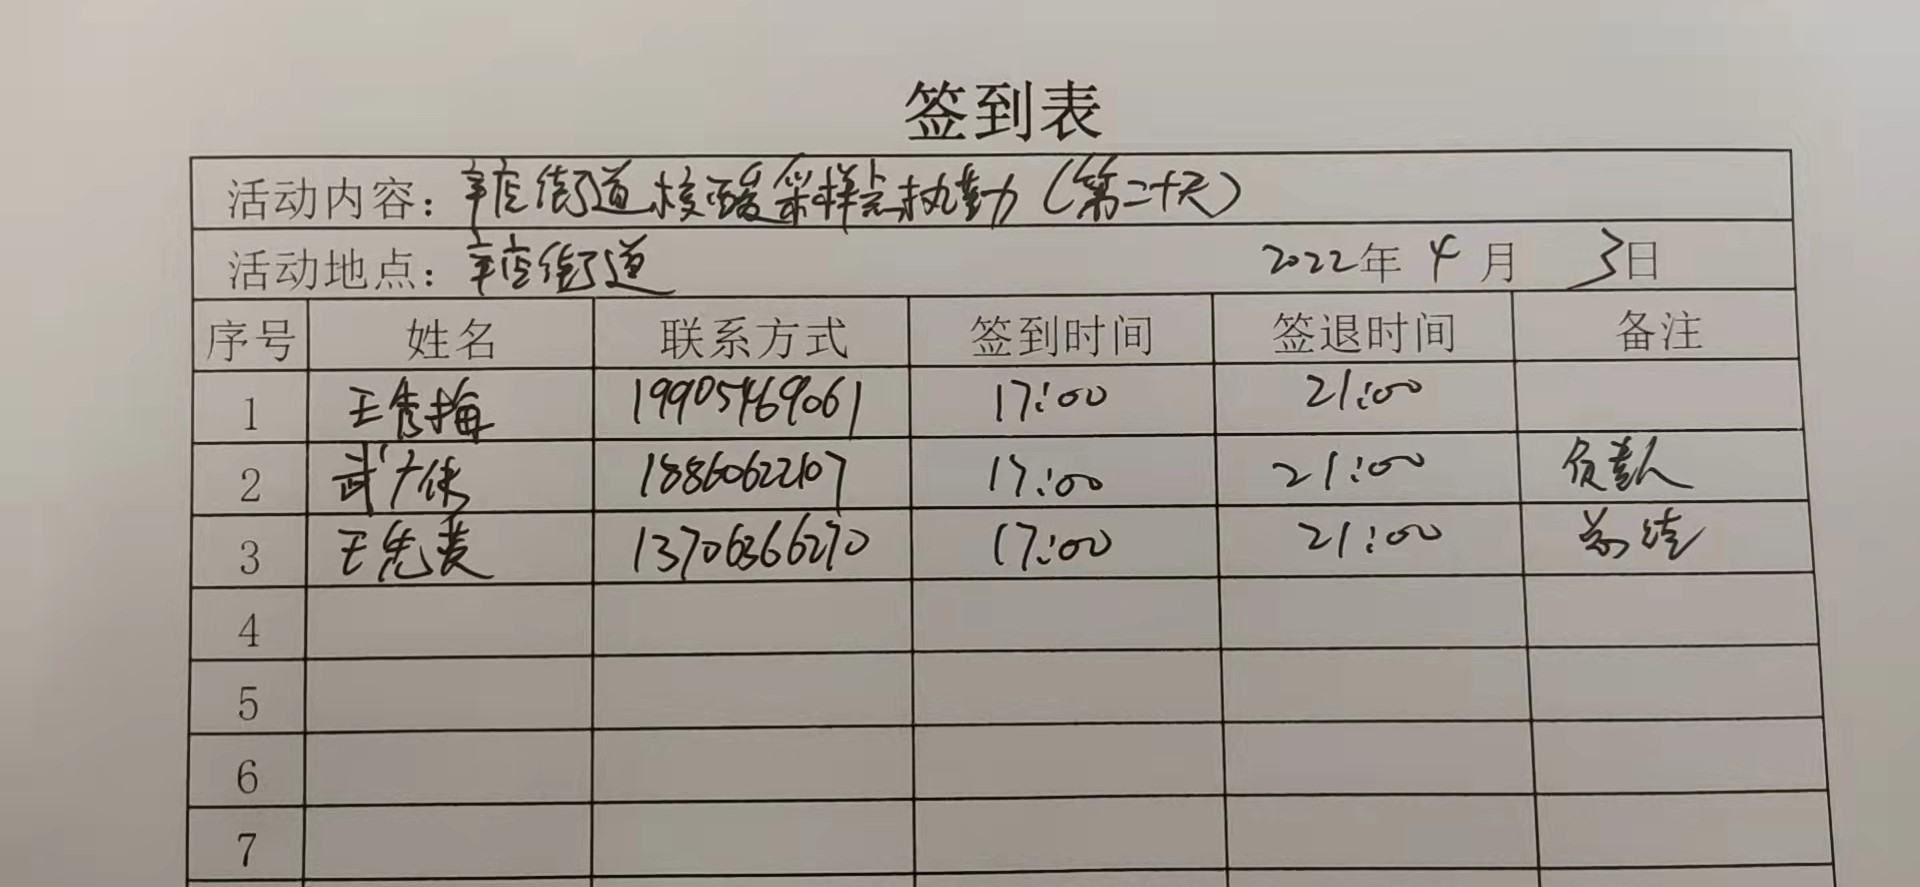 签到表
活动内容：辛店街道核酸采样点执勤（第二十天）
活动地点：辛店街道 2022年 4月 3日
序号 姓名 联系方式 签到时间 签退时间 备注
1 王秀梅 19905469061 17:00 21:00
2 武广体 18860622107 17:00 21:00 负责人
3 王宪美 13706366270 17:00 21:00
4
5
6
7